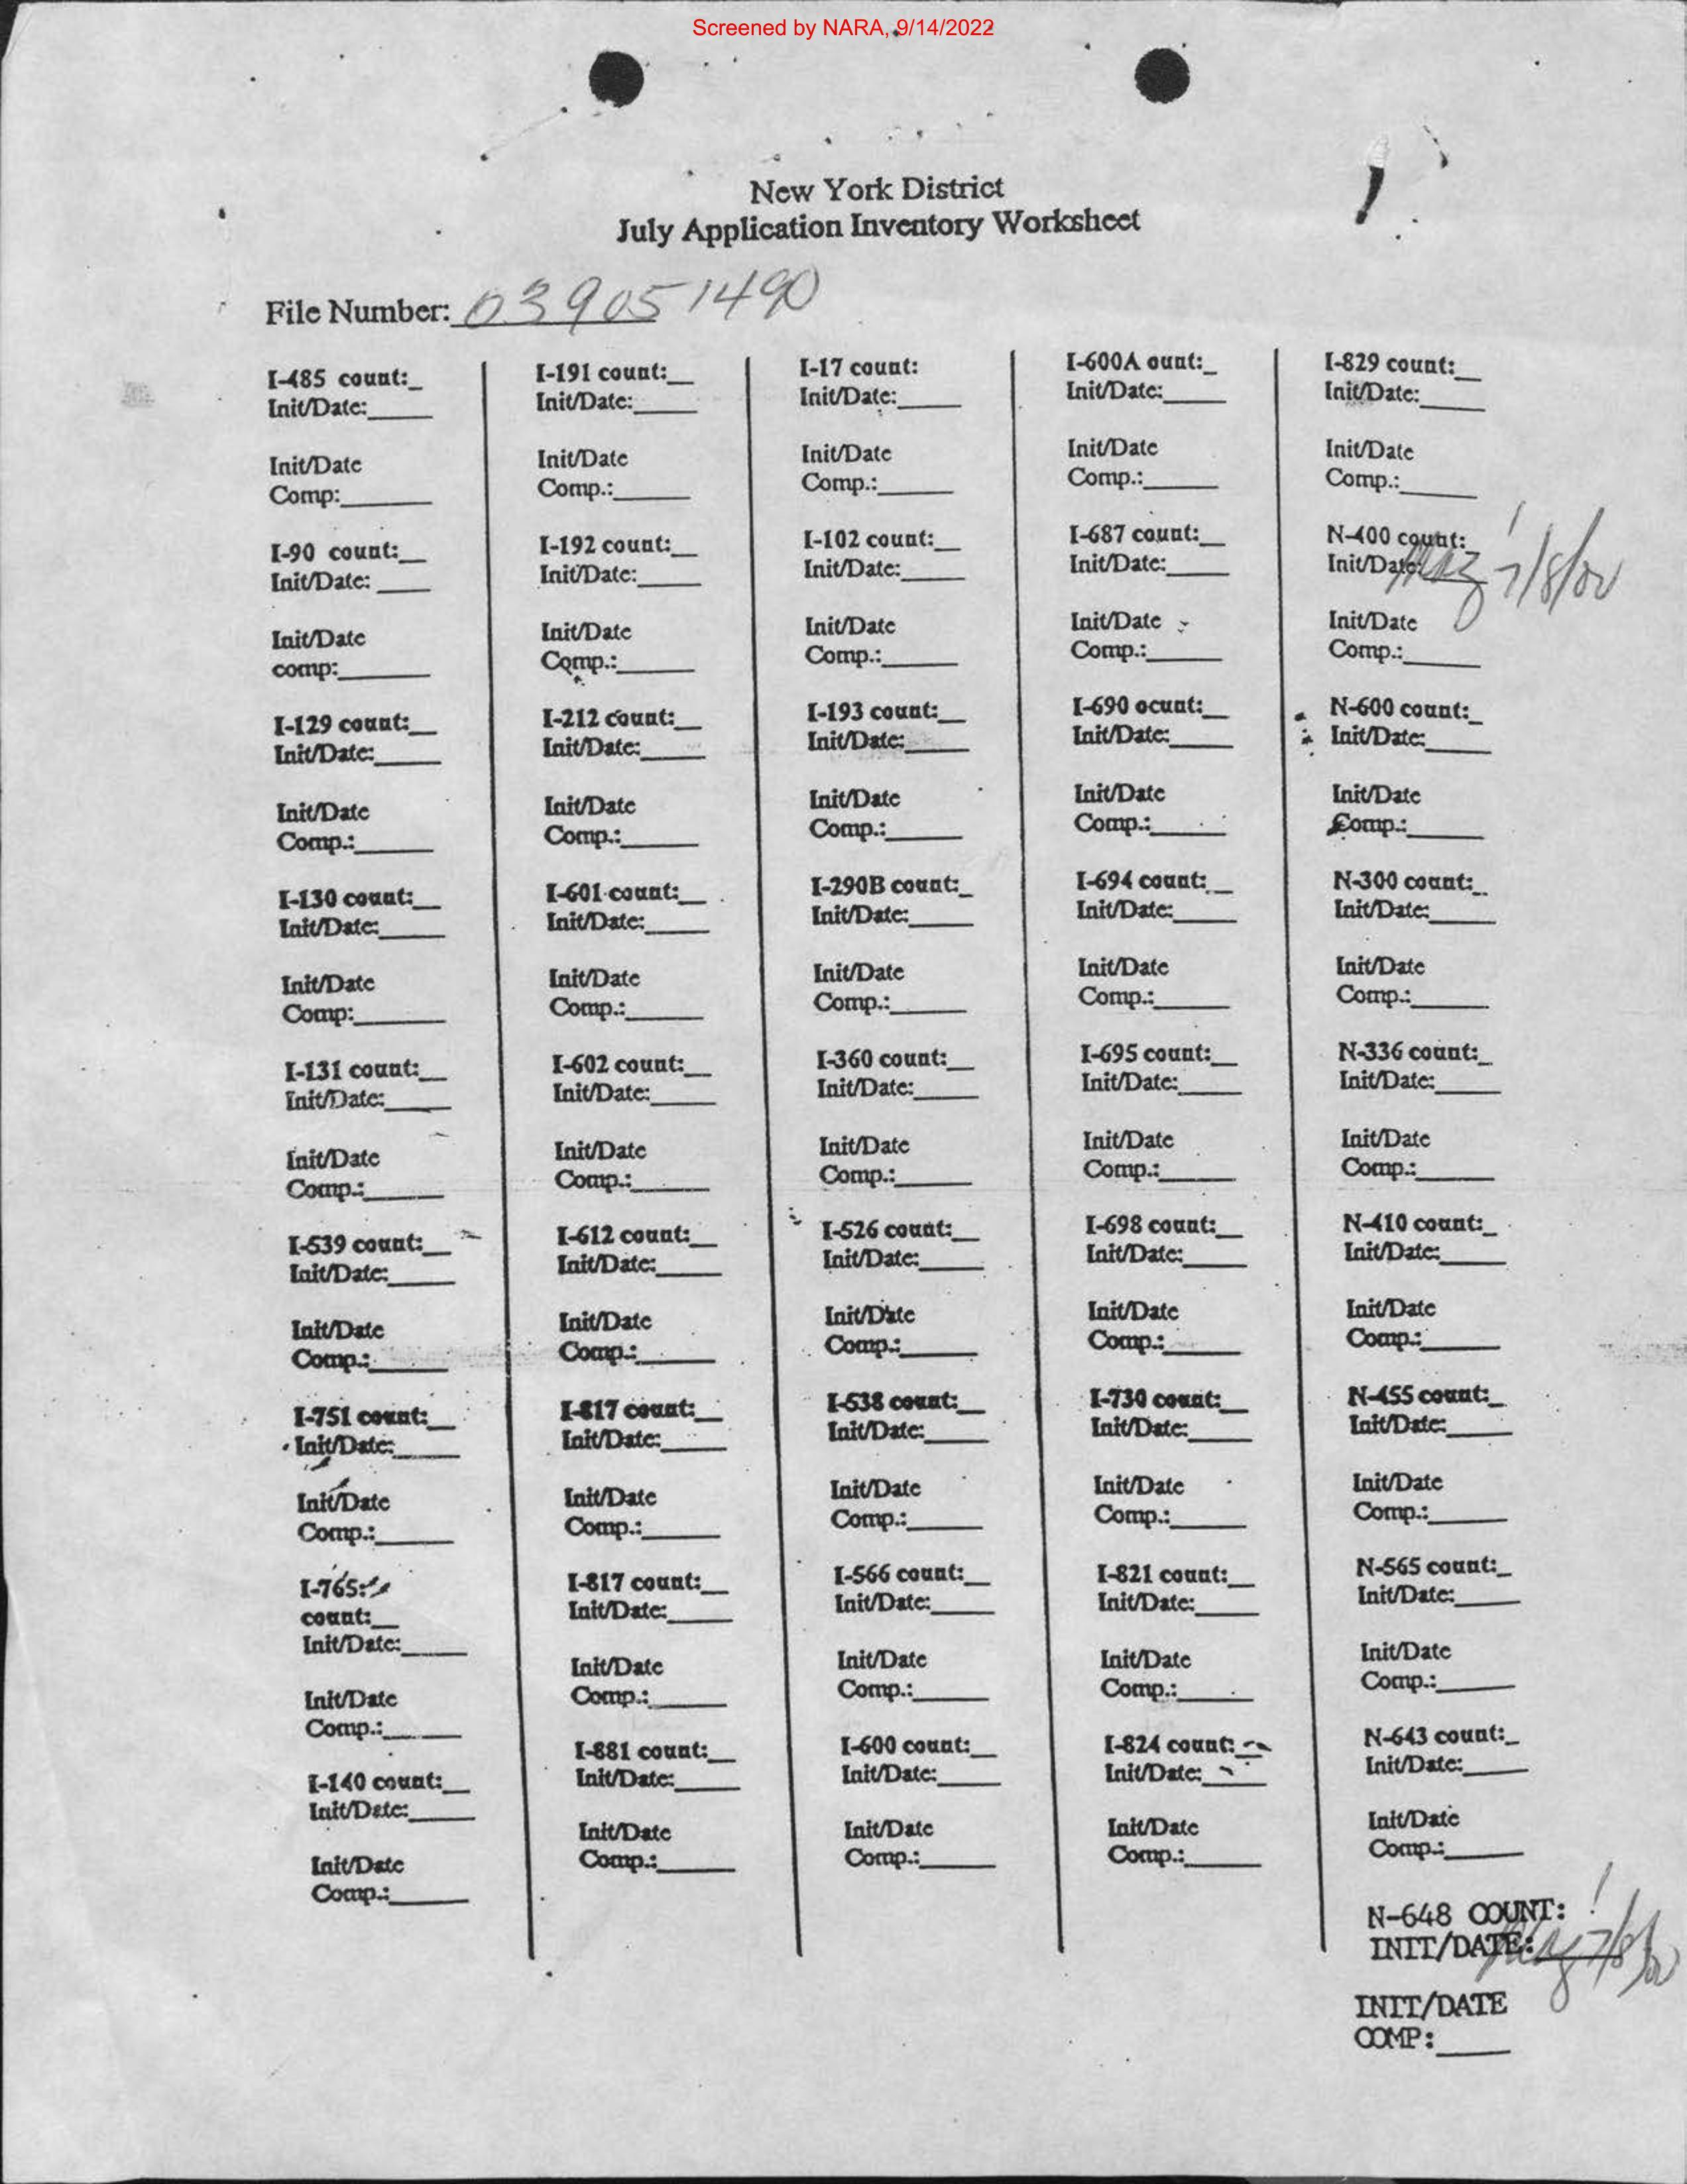 Screened by NARA, 9/14/2022
New York District
July Application Inventory Worksheet
File Number: 039051490
I-485 count:_
Init/Date:____
Init/Date
Comp:____
I-90 count:__
Init/Date: ____
Init/Date
comp:____
I-129 count:__
Init/Date:____
Init/Date
Comp.:____
I-130 count:__
Init/Date:____
Init/Date
Comp:____
I-131 count:__
Init/Date:____
Init/Date
Comp.:____
I-539 count:__
Init/Date:____
Init/Date
Comp.:____
I-751 count:__
Init/Date:____
Init/Date
Comp.:____
I-765:
count:__
Init/Date:____
Init/Date
Comp.:____
I-140 count:__
Init/Date:____
Init/Date
Comp.:____
I-191 count:__
Init/Date:____
Init/Date
Comp.:____
I-192 count:__
Init/Date:____
Init/Date
Comp.:____
I-212 count:__
Init/Date:____
Init/Date
Comp.:____
I-601 count:__
Init/Date:____
Init/Date
Comp.:____
I-602 count:__
Init/Date:____
Init/Date
Comp.:____
I-612 count:__
Init/Date:____
Init/Date
Comp.:____
I-817 count:__
Init/Date:____
Init/Date
Comp.:____
I-817 count:__
Init/Date:____
Init/Date
Comp.:____
I-881 count:__
Init/Date:____
Init/Date
Comp.:____
I-17 count:
Init/Date:____
Init/Date
Comp.:____
I-102 count:__
Init/Date:____
Init/Date
Comp.:____
I-193 count:__
Init/Date:____
Init/Date
Comp.:____
I-290B count:_
Init/Date:____
Init/Date
Comp.:____
I-360 count:__
Init/Date:____
Init/Date
Comp.:____
I-526 count:__
Init/Date:____
Init/Date
Comp.:____
I-538 count:__
Init/Date:____
Init/Date
Comp.:____
I-566 count:__
Init/Date:____
Init/Date
Comp.:____
I-600 count:__
Init/Date:____
Init/Date
Comp.:____
I-600A ount:_
Init/Date:____
Init/Date
Comp.:____
I-687 count:__
Init/Date:____
Init/Date
Comp.:____
I-690 ocunt:__
Init/Date:____
Init/Date
Comp.:____
I-694 count:__
Init/Date:____
Init/Date
Comp.:____
I-695 count:__
Init/Date:____
Init/Date
Comp.:____
I-698 count:__
Init/Date:____
Init/Date
Comp.:____
I-730 count:__
Init/Date:____
Init/Date
Comp.:____
I-821 count:__
Init/Date:____
Init/Date
Comp.:____
I-824 count:__
Init/Date:____
Init/Date
Comp.:____
I-829 count:__
Init/Date:____
Init/Date
Comp.:____
N-400 count: 1
Init/Date: 7/8/02
Init/Date
Comp.:____
N-600 count:_
Init/Date:____
Init/Date
Comp.:____
N-300 count:_
Init/Date:____
Init/Date
Comp.:____
N-336 count:_
Init/Date:____
Init/Date
Comp.:____
N-410 count:_
Init/Date:____
Init/Date
Comp.:____
N-455 count:_
Init/Date:____
Init/Date
Comp.:____
N-565 count:_
Init/Date:____
Init/Date
Comp.:____
N-643 count:_
Init/Date:____
Init/Date
Comp.:____
N-648 COUNT: 1
INIT/DATE: 7/8/02
INIT/DATE
COMP:____